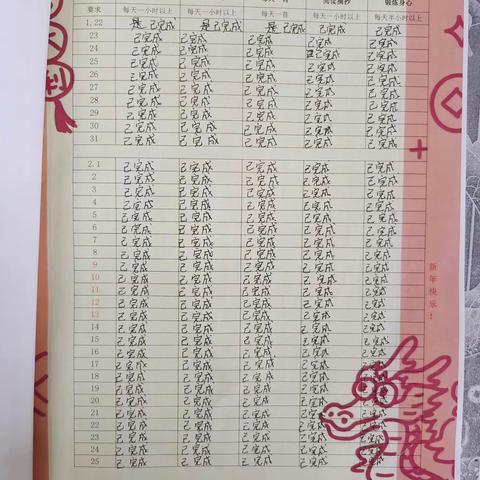 要求 每天一小时以上 每天一小时以上 每天一首 阅读摘抄 锻炼身心
每天一小时以上 每天半小时以上
1.22 是 已完成 是 已完成 是 已完成 已完成 已完成
23 已完成 已完成 已完成 已完成 已完成
24 已完成 已完成 已完成 已完成 已完成
25 已完成 已完成 已完成 已完成 已完成
26 已完成 已完成 已完成 已完成 已完成
27 已完成 已完成 已完成 已完成 已完成
28 已完成 已完成 已完成 已完成 已完成
29 已完成 已完成 已完成 已完成 已完成
30 已完成 已完成 已完成 已完成 已完成
31 已完成 已完成 已完成 已完成 已完成
2.1 已完成 已完成 已完成 已完成 已完成
2 已完成 已完成 已完成 已完成 已完成
3 已完成 已完成 已完成 已完成 已完成
4 已完成 已完成 已完成 已完成 已完成
5 已完成 已完成 已完成 已完成 已完成
6 已完成 已完成 已完成 已完成 已完成
7 已完成 已完成 已完成 已完成 已完成
8 已完成 已完成 已完成 已完成 已完成
9 已完成 已完成 已完成 已完成 已完成
10 已完成 已完成 已完成 已完成 已完成
11 已完成 已完成 已完成 已完成 已完成
12 已完成 已完成 已完成 已完成 已完成
13 已完成 已完成 已完成 已完成 已完成
14 已完成 已完成 已完成 已完成 已完成
15 已完成 已完成 已完成 已完成 已完成
16 已完成 已完成 已完成 已完成 已完成
17 已完成 已完成 已完成 已完成 已完成
18 已完成 已完成 已完成 已完成 已完成
19 已完成 已完成 已完成 已完成 已完成
20 已完成 已完成 已完成 已完成 已完成
21 已完成 已完成 已完成 已完成 已完成
22 已完成 已完成 已完成 已完成 已完成
23 已完成 已完成 已完成 已完成 已完成
24 已完成 已完成 已完成 已完成 已完成
25 已完成 已完成 已完成 已完成 已完成
新年快乐！